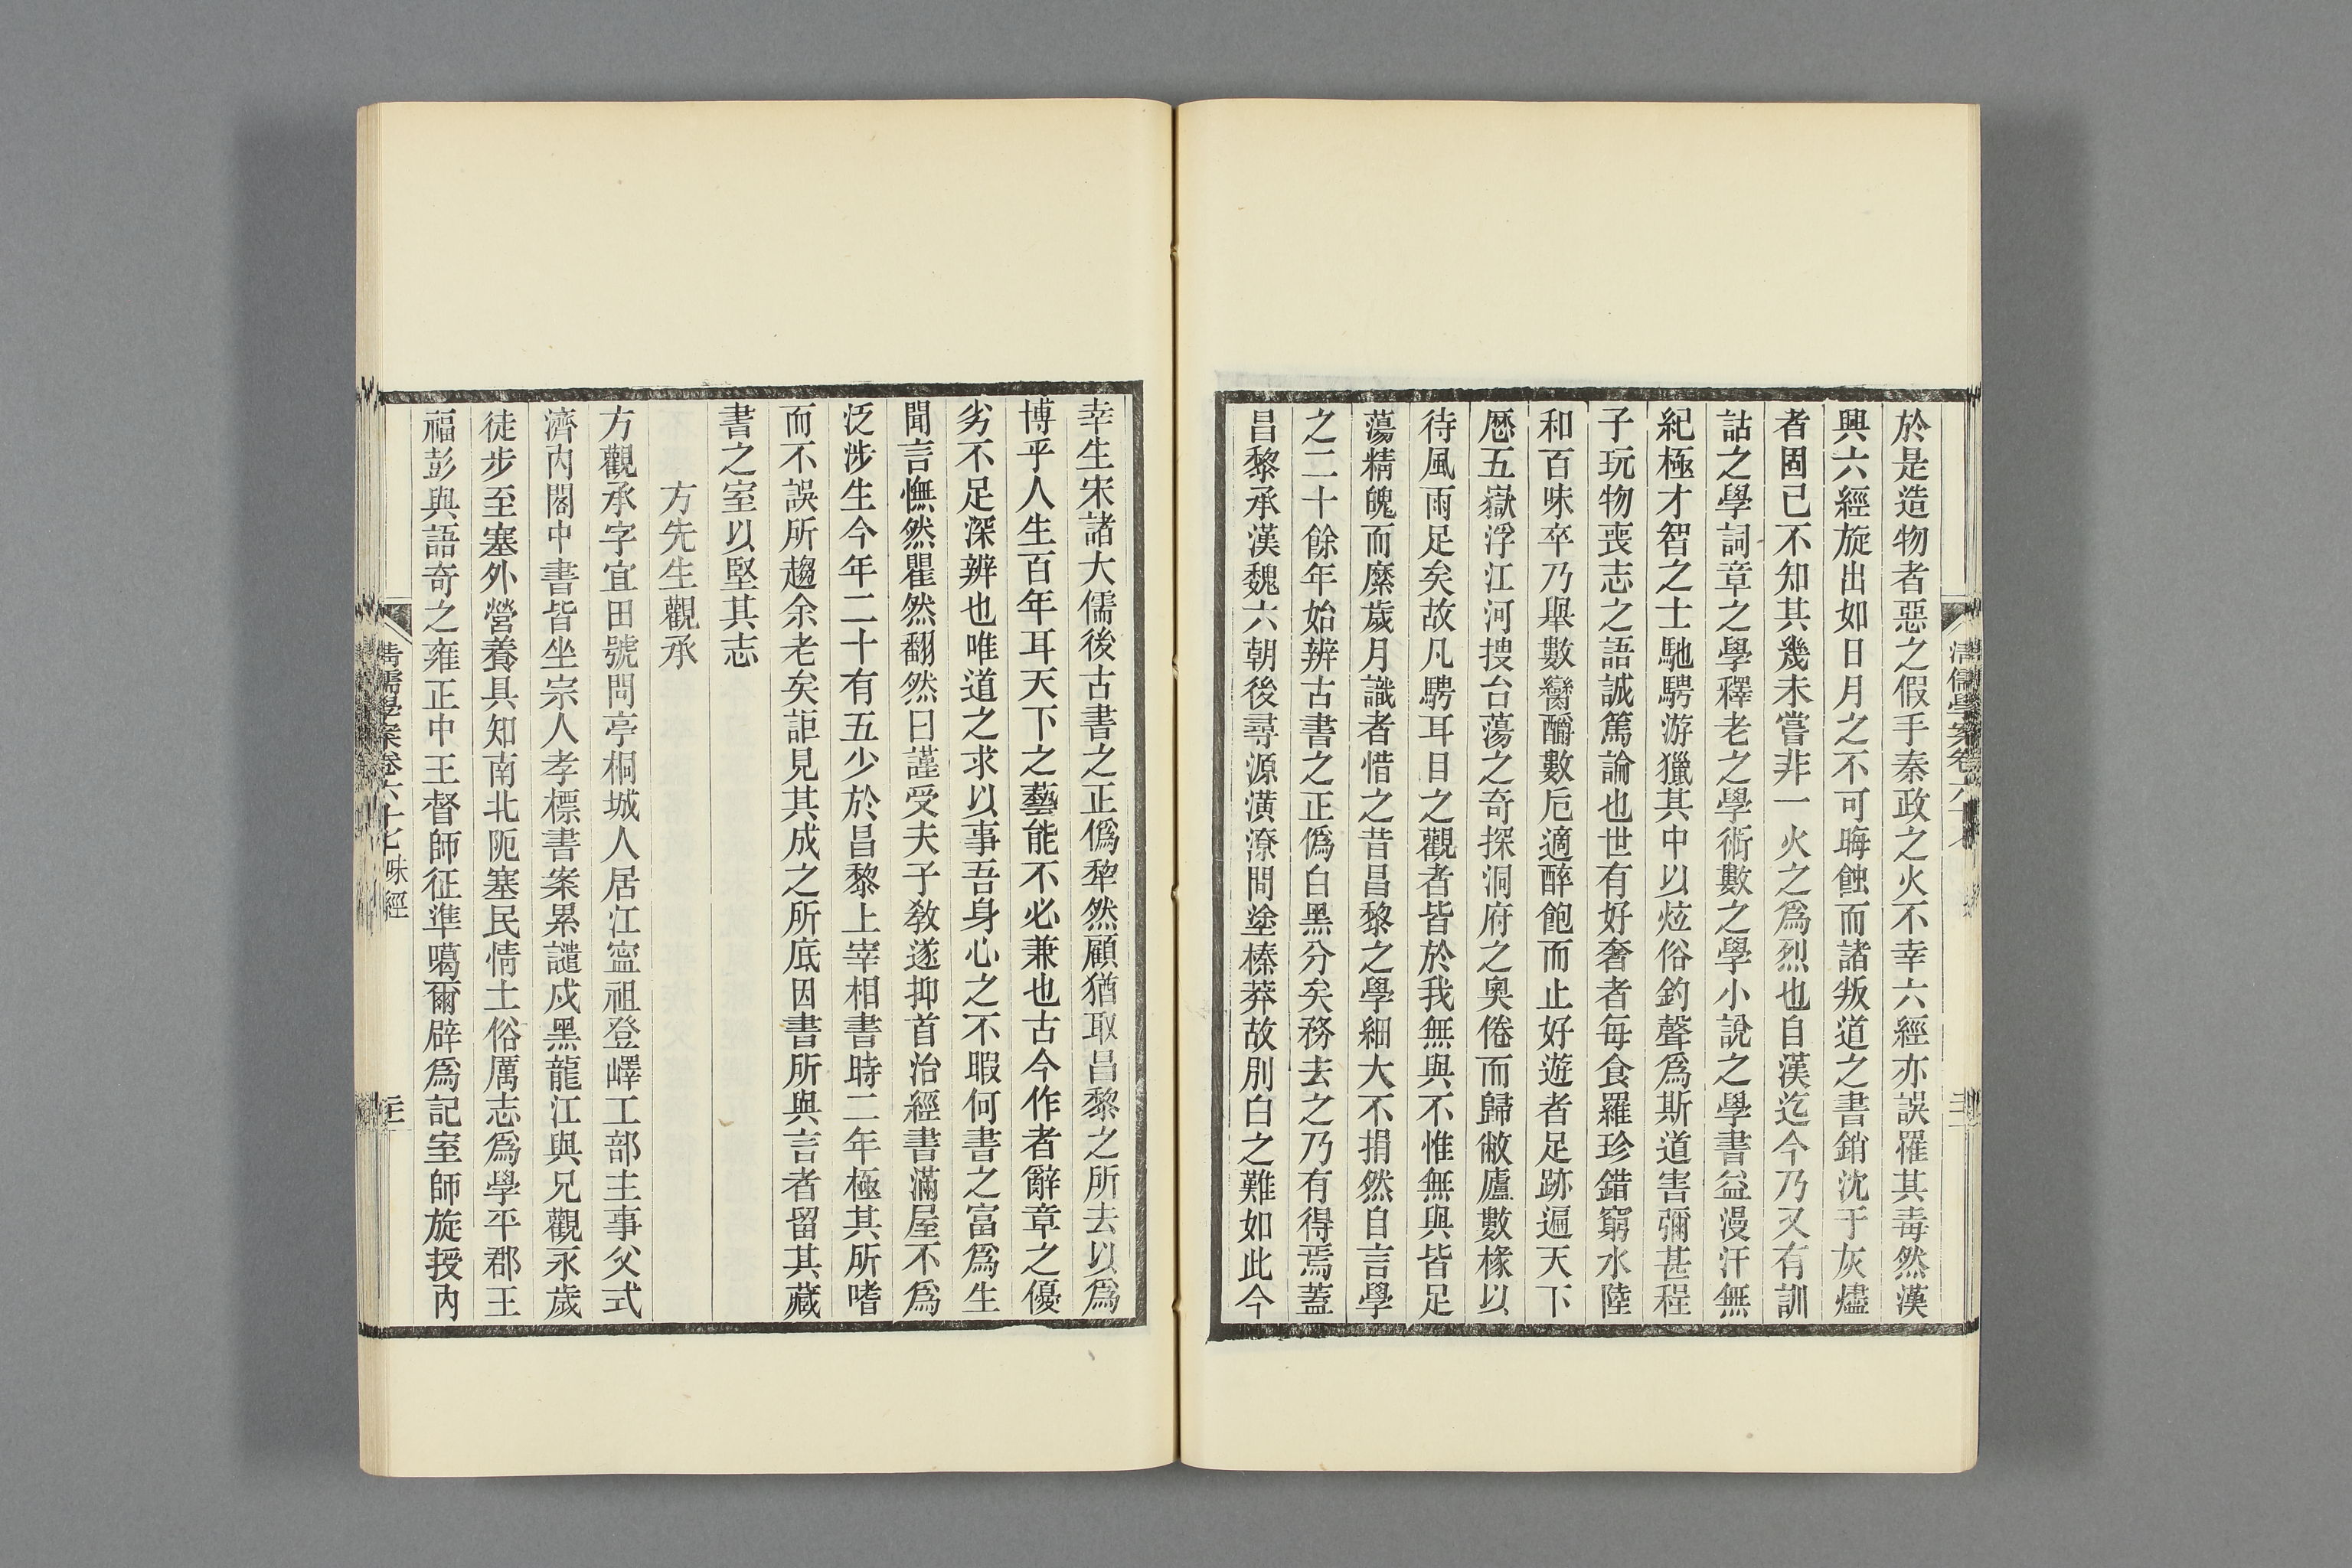 於是造物者惡之假手秦政之火不幸六經亦誤罹其毒然漢
興六經旋出如日月之不可晦蝕而諸叛道之書銷沈于灰燼
者固已不知其幾未嘗非一火之爲烈也自漢迄今乃又有訓
詁之學詞章之學釋老之學術數之學小說之學書益漫汗無
紀極才智之士馳騁游獵其中以炫俗釣聲爲斯道害彌甚程
子玩物喪志之語誠篤論也世有好奢者每食羅珍錯窮水陸
和百味卒乃舉數臠酾數卮適醉飽而止好遊者足跡遍天下
歷五嶽浮江河搜台蕩之奇探洞府之奧倦而歸敝廬數椽以
待風雨足矣故凡騁耳目之觀者皆於我無與不惟無與皆足
蕩精魄而縻歲月識者惜之昔昌黎之學細大不捐然自言學
之二十餘年始辨古書之正僞白黑分矣務去之乃有得焉蓋
昌黎承漢魏六朝後尋源潢潦問塗榛莽故別白之難如此今
幸生宋諸大儒後古書之正僞犂然顧猶取昌黎之所去以爲
博乎人生百年耳天下之藝能不必兼也古今作者辭章之優
劣不足深辨也唯道之求以事吾身心之不暇何書之富爲生
聞言憮然瞿然翻然曰謹受夫子敎遂抑首治經書滿屋不爲
泛涉生今年二十有五少於昌黎上宰相書時二年極其所嗜
而不誤所趨余老矣詎見其成之所底因書所與言者留其藏
書之室以堅其志
方先生觀承
方觀承字宜田號問亭桐城人居江寍祖登嶧工部主事父式
濟內閣中書皆坐宗人孝標書案累譴戍黑龍江與兄觀永歲
徒步至塞外營養具知南北阨塞民情土俗厲志爲學平郡王
福彭與語奇之雍正中王督師征準噶爾辟爲記室師旋授內
清儒學案卷六十七 味經